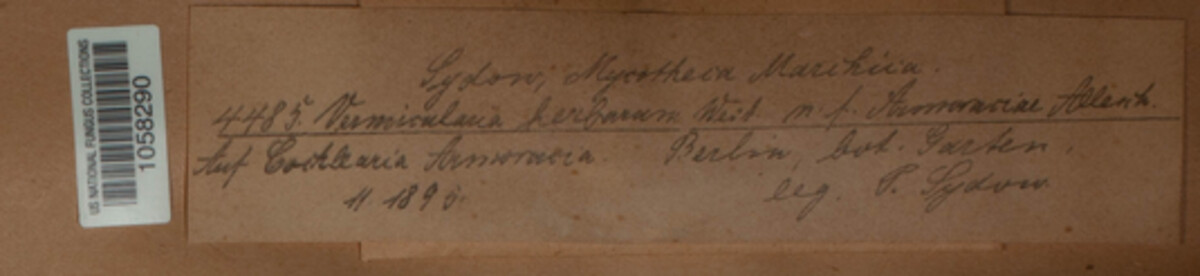 US NATIONAL FUNGUS COLLECTIONS
1058290
Sydow, Mycotheca Marchica.
4485. Vermicularia herbarum West. n. f. Armoraciae Allesch.
Auf Cochlearia Armoracia. Berlin, bot. Garten.
11 1895. leg. P. Sydow